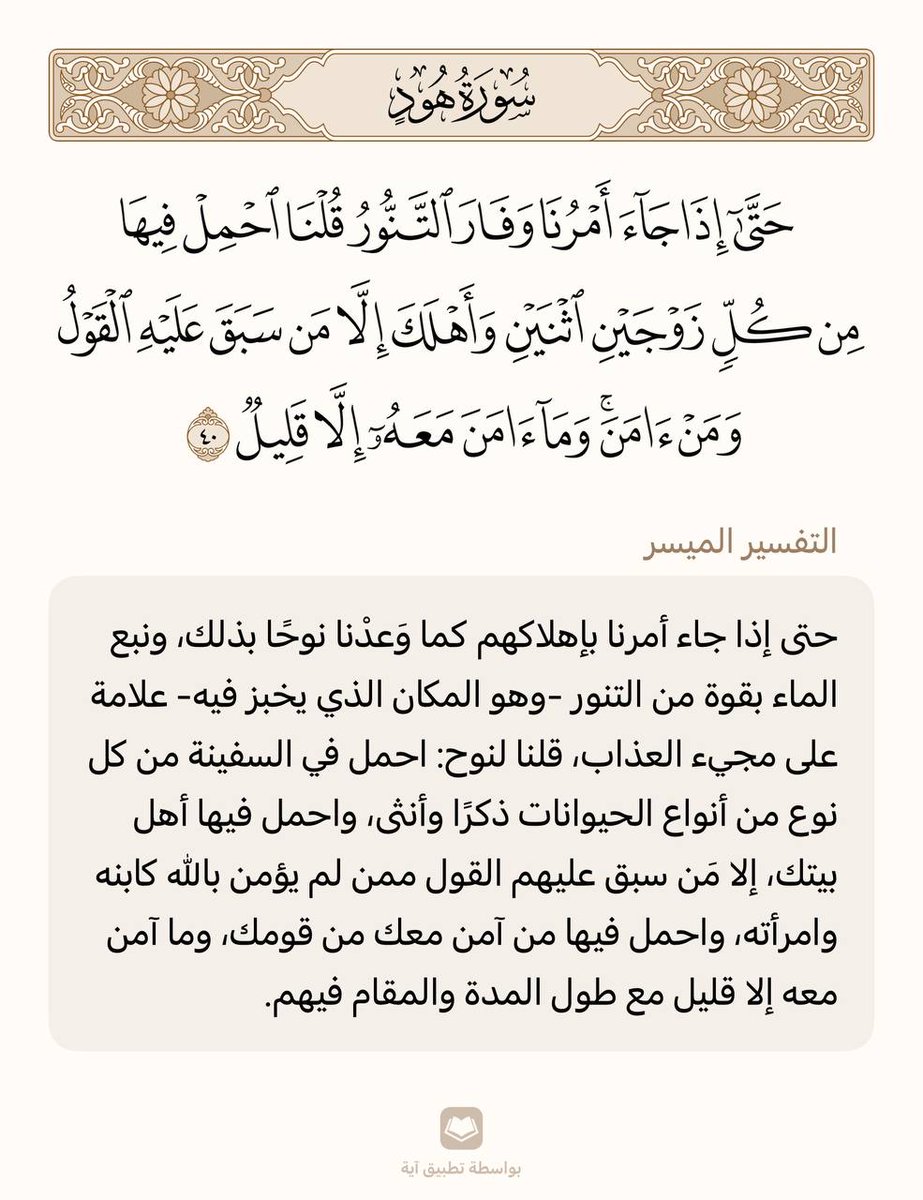 سُورَةُ هُودٍ
حَتَّىٰٓ إِذَا جَآءَ أَمۡرُنَا وَفَارَ ٱلتَّنُّورُ قُلۡنَا ٱحۡمِلۡ فِيهَا
مِن كُلّٖ زَوۡجَيۡنِ ٱثۡنَيۡنِ وَأَهۡلَكَ إِلَّا مَن سَبَقَ عَلَيۡهِ ٱلۡقَوۡلُ
وَمَنۡ ءَامَنَۚ وَمَآ ءَامَنَ مَعَهُۥٓ إِلَّا قَلِيلٞ ٤٠
التفسير الميسر
حتى إذا جاء أمرنا بإهلاكهم كما وَعدْنا نوحًا بذلك، ونبع
الماء بقوة من التنور -وهو المكان الذي يخبز فيه- علامة
على مجيء العذاب، قلنا لنوح: احمل في السفينة من كل
نوع من أنواع الحيوانات ذكرًا وأنثى، واحمل فيها أهل
بيتك، إلا مَن سبق عليهم القول ممن لم يؤمن بالله كابنه
وامرأته، واحمل فيها من آمن معك من قومك، وما آمن
معه إلا قليل مع طول المدة والمقام فيهم.
بواسطة تطبيق آية